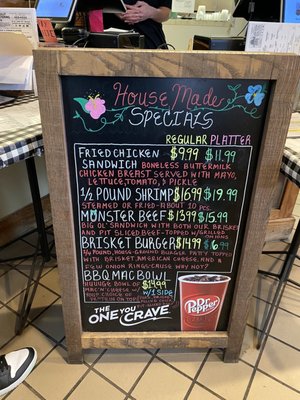 House Made
Specials
REGULAR PLATTER
FRIED CHICKEN $9.99 $11.99
SANDWICH BONELESS BUTTERMILK
CHICKEN BREAST SERVED WITH MAYO,
LETTUCE, TOMATO, & PICKLE
1/2 POUND SHRIMP $16.99 $19.99
STEAMED OR FRIED - ABOUT 10 PCS
MONSTER BEEF $13.99 $15.99
BIG OL' SANDWICH WITH BOTH OUR BRISKET
AND PIT SLICED BEEF - TOPPED W/
BRISKET BURGER $14.99
POUND, HOUSE-GROUND BURGER PATTY TOPPED
WITH BRISKET, AMERICAN CHEESE, AND A
FEW ONION RINGS - CAUSE WHY NOT?
BBQ MAC BOWL $14.99
W/ 1 SIDE
MAC 'N CHEESE W/
YOUR CHOICE OF
PROTEIN ON TOP
THE ONE YOU CRAVE.
Dr Pepper